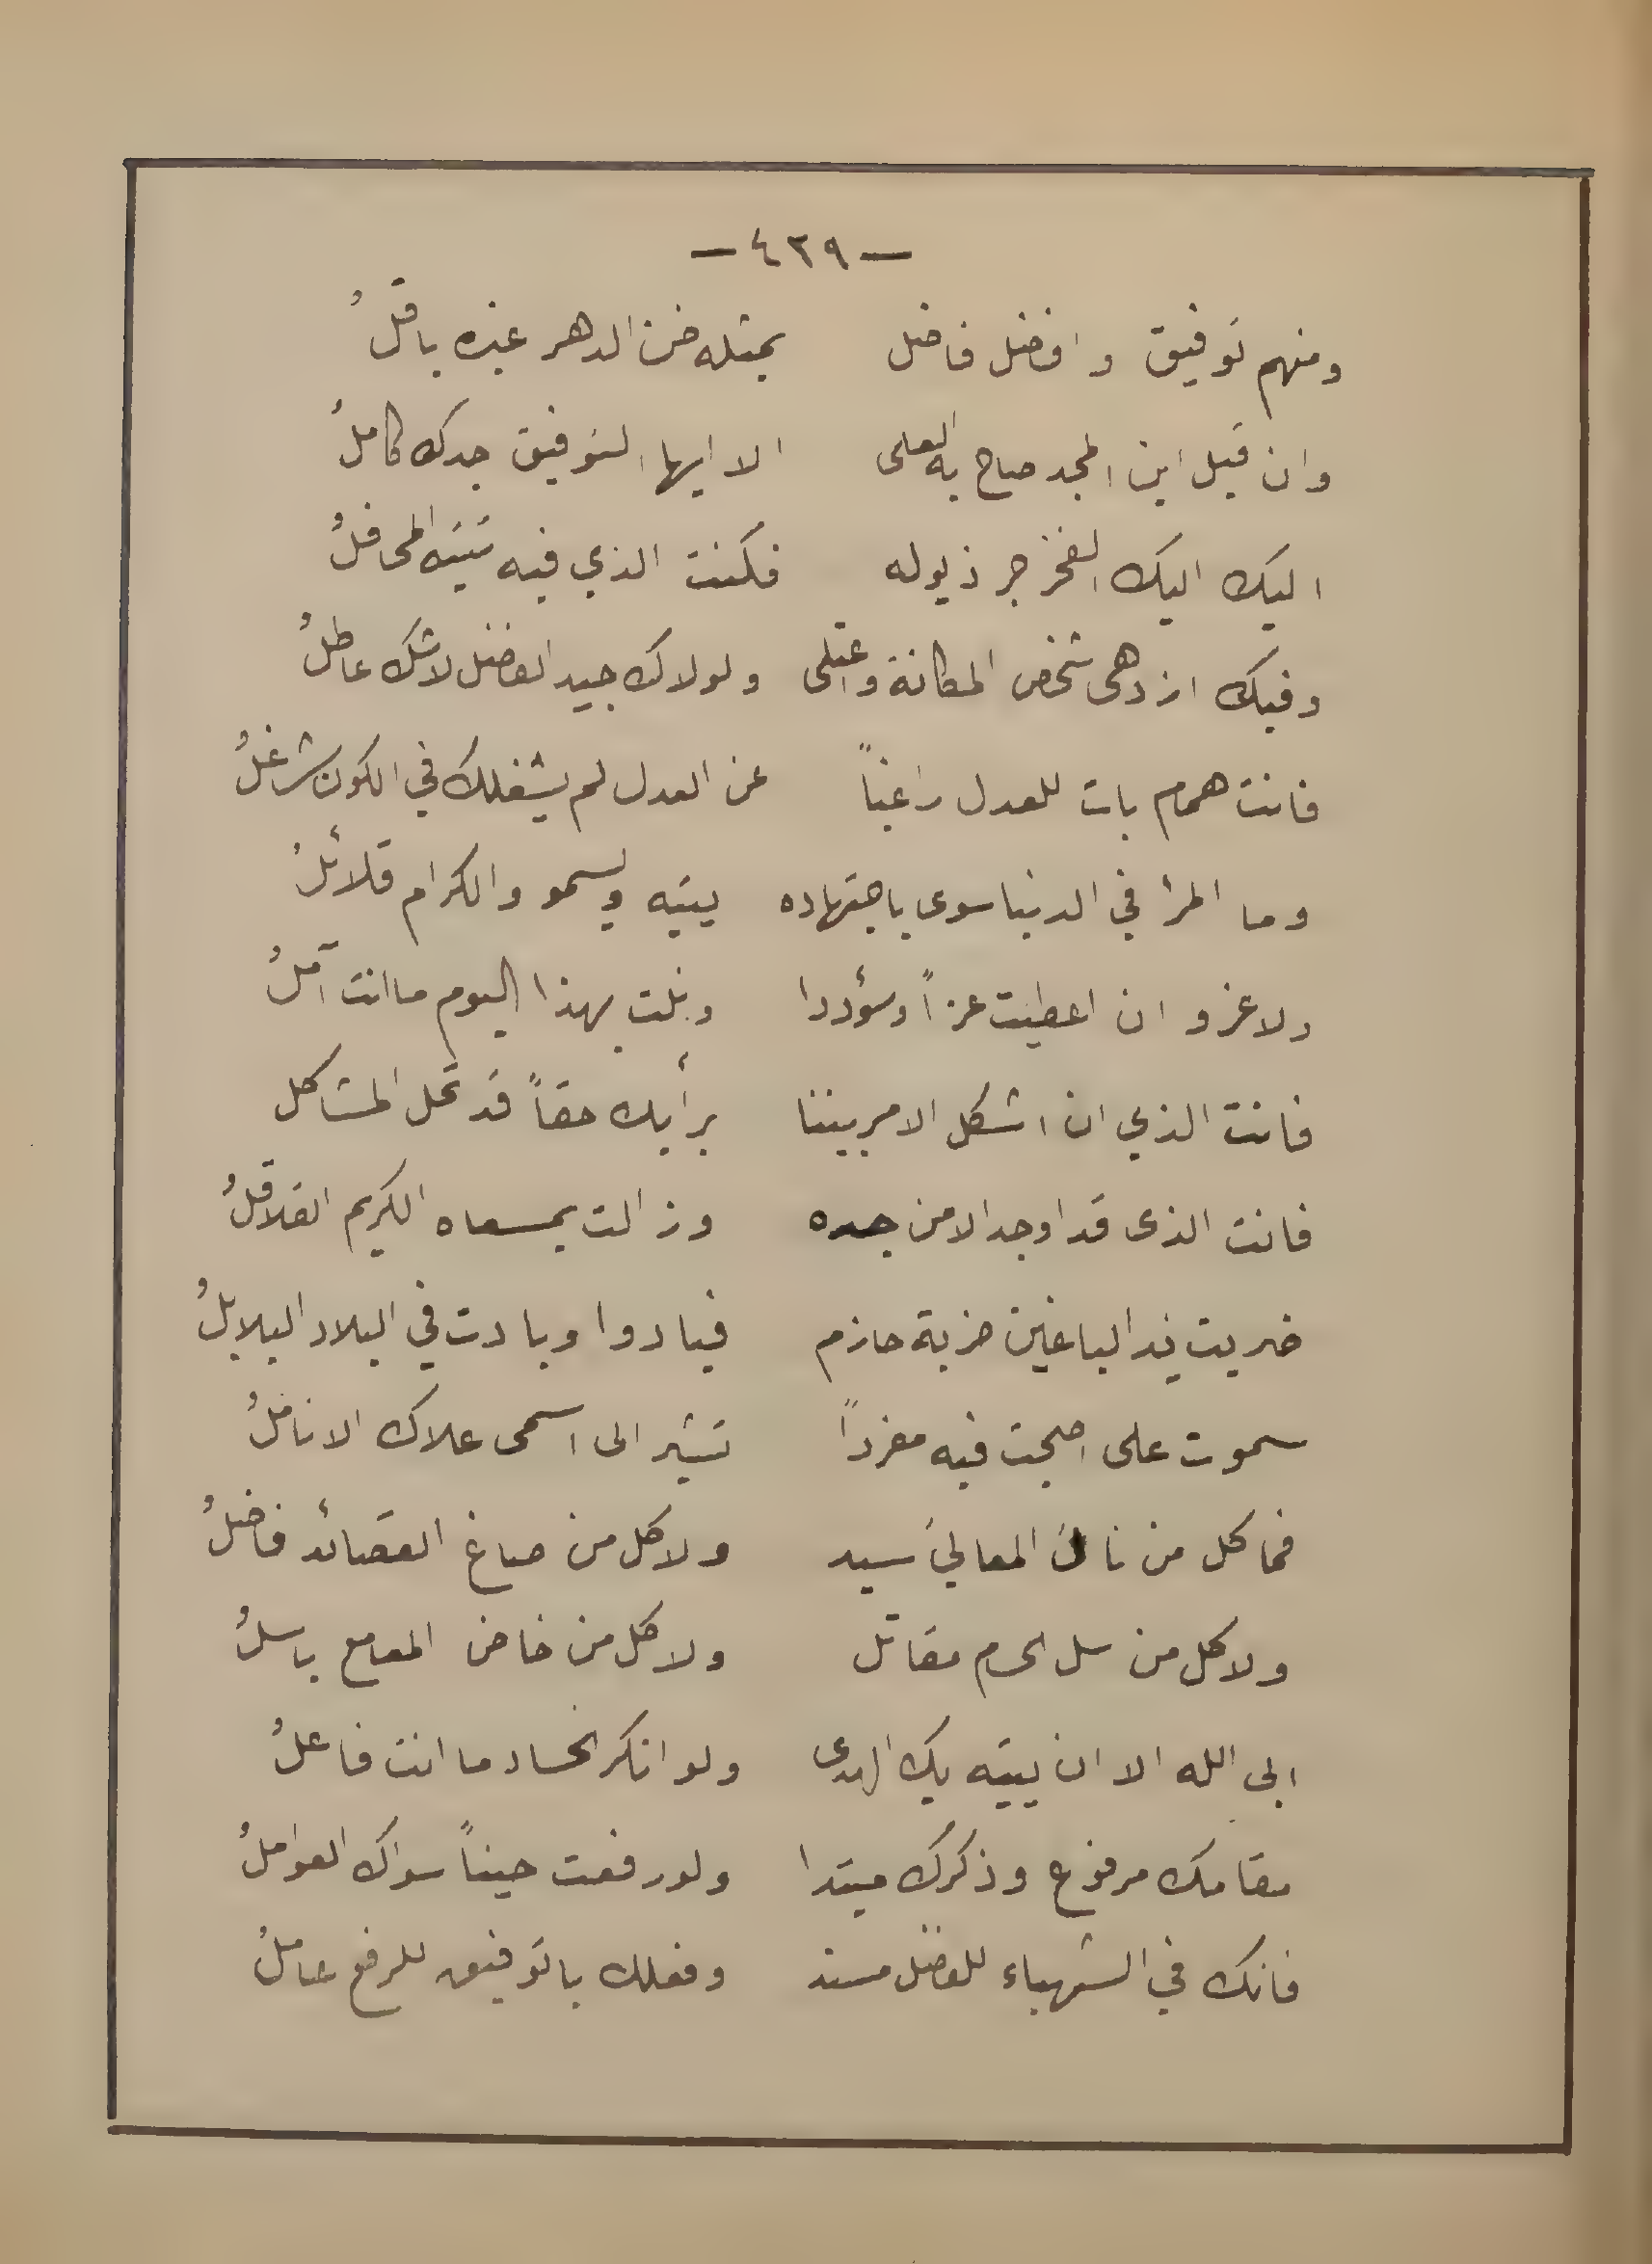 — ٤٣٩ —
ومنهم توفيق وافضل فاضل بمثله ضن الدهر غيره باقلُ
وان قيل اين المجد صاح به العلى الا ايها التوفيق جدك كاملُ
اليك اليك الفخر جر ذيوله فكنت الذي فيه تتيه المحافلُ
وفيك ازدهى شخص المكانة واعتلى ولولاك جيد الفضل لاشك عاطلُ
فانت همام بات للعدل راغباً عن العدل لم يشغلك في الكون شاغلُ
وما المرأ في الدنيا سوى باجتهاده يتيه ويسمو والكرام قلائلُ
ولا غرو ان اعطيت عزاً وسؤددا ونلت بهذا اليوم ما انت آملُ
فانت الذي ان اشكل الامر بيننا برأيك حقاً قد تحل المشاكل
فانت الذى قد اوجد الامن جده وزالت بمسعاه الكريم القلاقلُ
ضربت يد الباغين ضربة حازم فبادوا وبادت في البلاد البلابلُ
سموت على اصبحت فيه مفرداً تشير الى اسمى علاك الاناملُ
فما كل من نال المعاليَ سيد ولا كل من صاغ القصائد فاضلُ
ولا كل من سل الحسام مقاتل ولا كل من خاض المعامع باسلُ
ابى الله الا ان يتيه بك الهدى ولو انكر الحساد ما انت فاعلُ
مقامك مرفوع وذكرك مبتدا ولو رفعت حيناً سواك العواملُ
فانك في الشهباء للفضل مسند وفعلك يا توفيق للرفع عاملُ